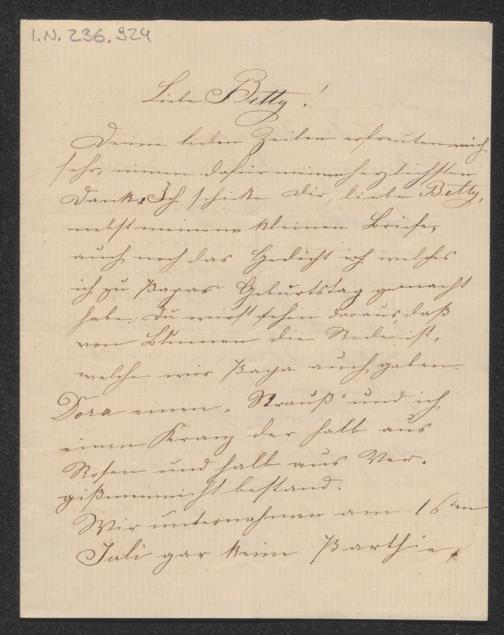 I.N. 236.924
Liebe Betty!
Deine lieben Zeilen erfreuten mich
sehr, nimm dafür meinen herzlichsten
Dank. Ich schicke Dir, liebe Betty,
nebst meinem kleinen Briefe,
auch noch das Gedicht welches
ich zu Papas Geburtstag gemacht
habe. Du wirst sehen daraus, daß
von Blumen die Rede ist,
welche wir Papa auch gaben.
Dora einen Strauß und ich
einen Kranz der halb aus
Rosen und halb aus Ver-
gißmeinnicht bestand.
Wir unternahmen am 16ten
Juli gar keine Parthie,